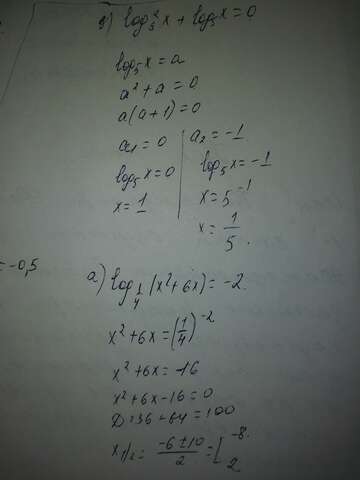 г) log₅²x + log₅x = 0
log₅x = a
a² + a = 0
a(a+1) = 0
a₁ = 0 | a₂ = -1
log₅x = 0 | log₅x = -1
x = 1 | x = 5⁻¹
x = 1/5.
= -0,5
а) log_{1/4}(x² + 6x) = -2
x² + 6x = (1/4)⁻²
x² + 6x = 16
x² + 6x - 16 = 0
D = 36 + 64 = 100
x₁/₂ = (-6 ± 10)/2 = [ -8 2